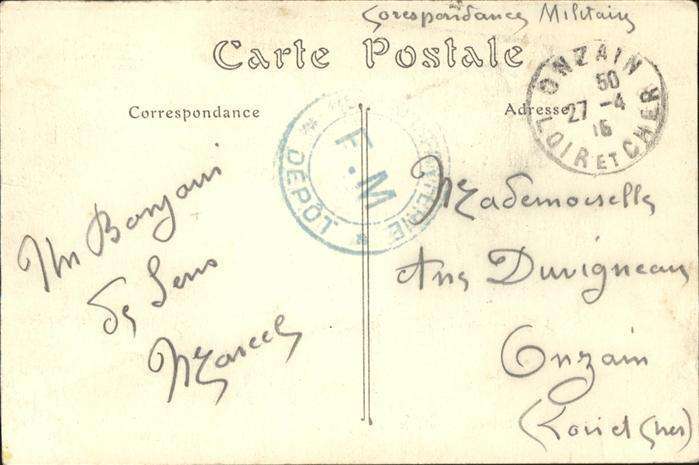 Corespondance Militaire
Carte Postale
Correspondance
Adresse
ONZAIN
50
27 -4
16
LOIR ET CHER
INFANTERIE
DÉPÔT
F.M
Un Bonjour
de Sens
Marcel
Mademoiselle
Duvigneau
Onzain
(Loir et Cher)